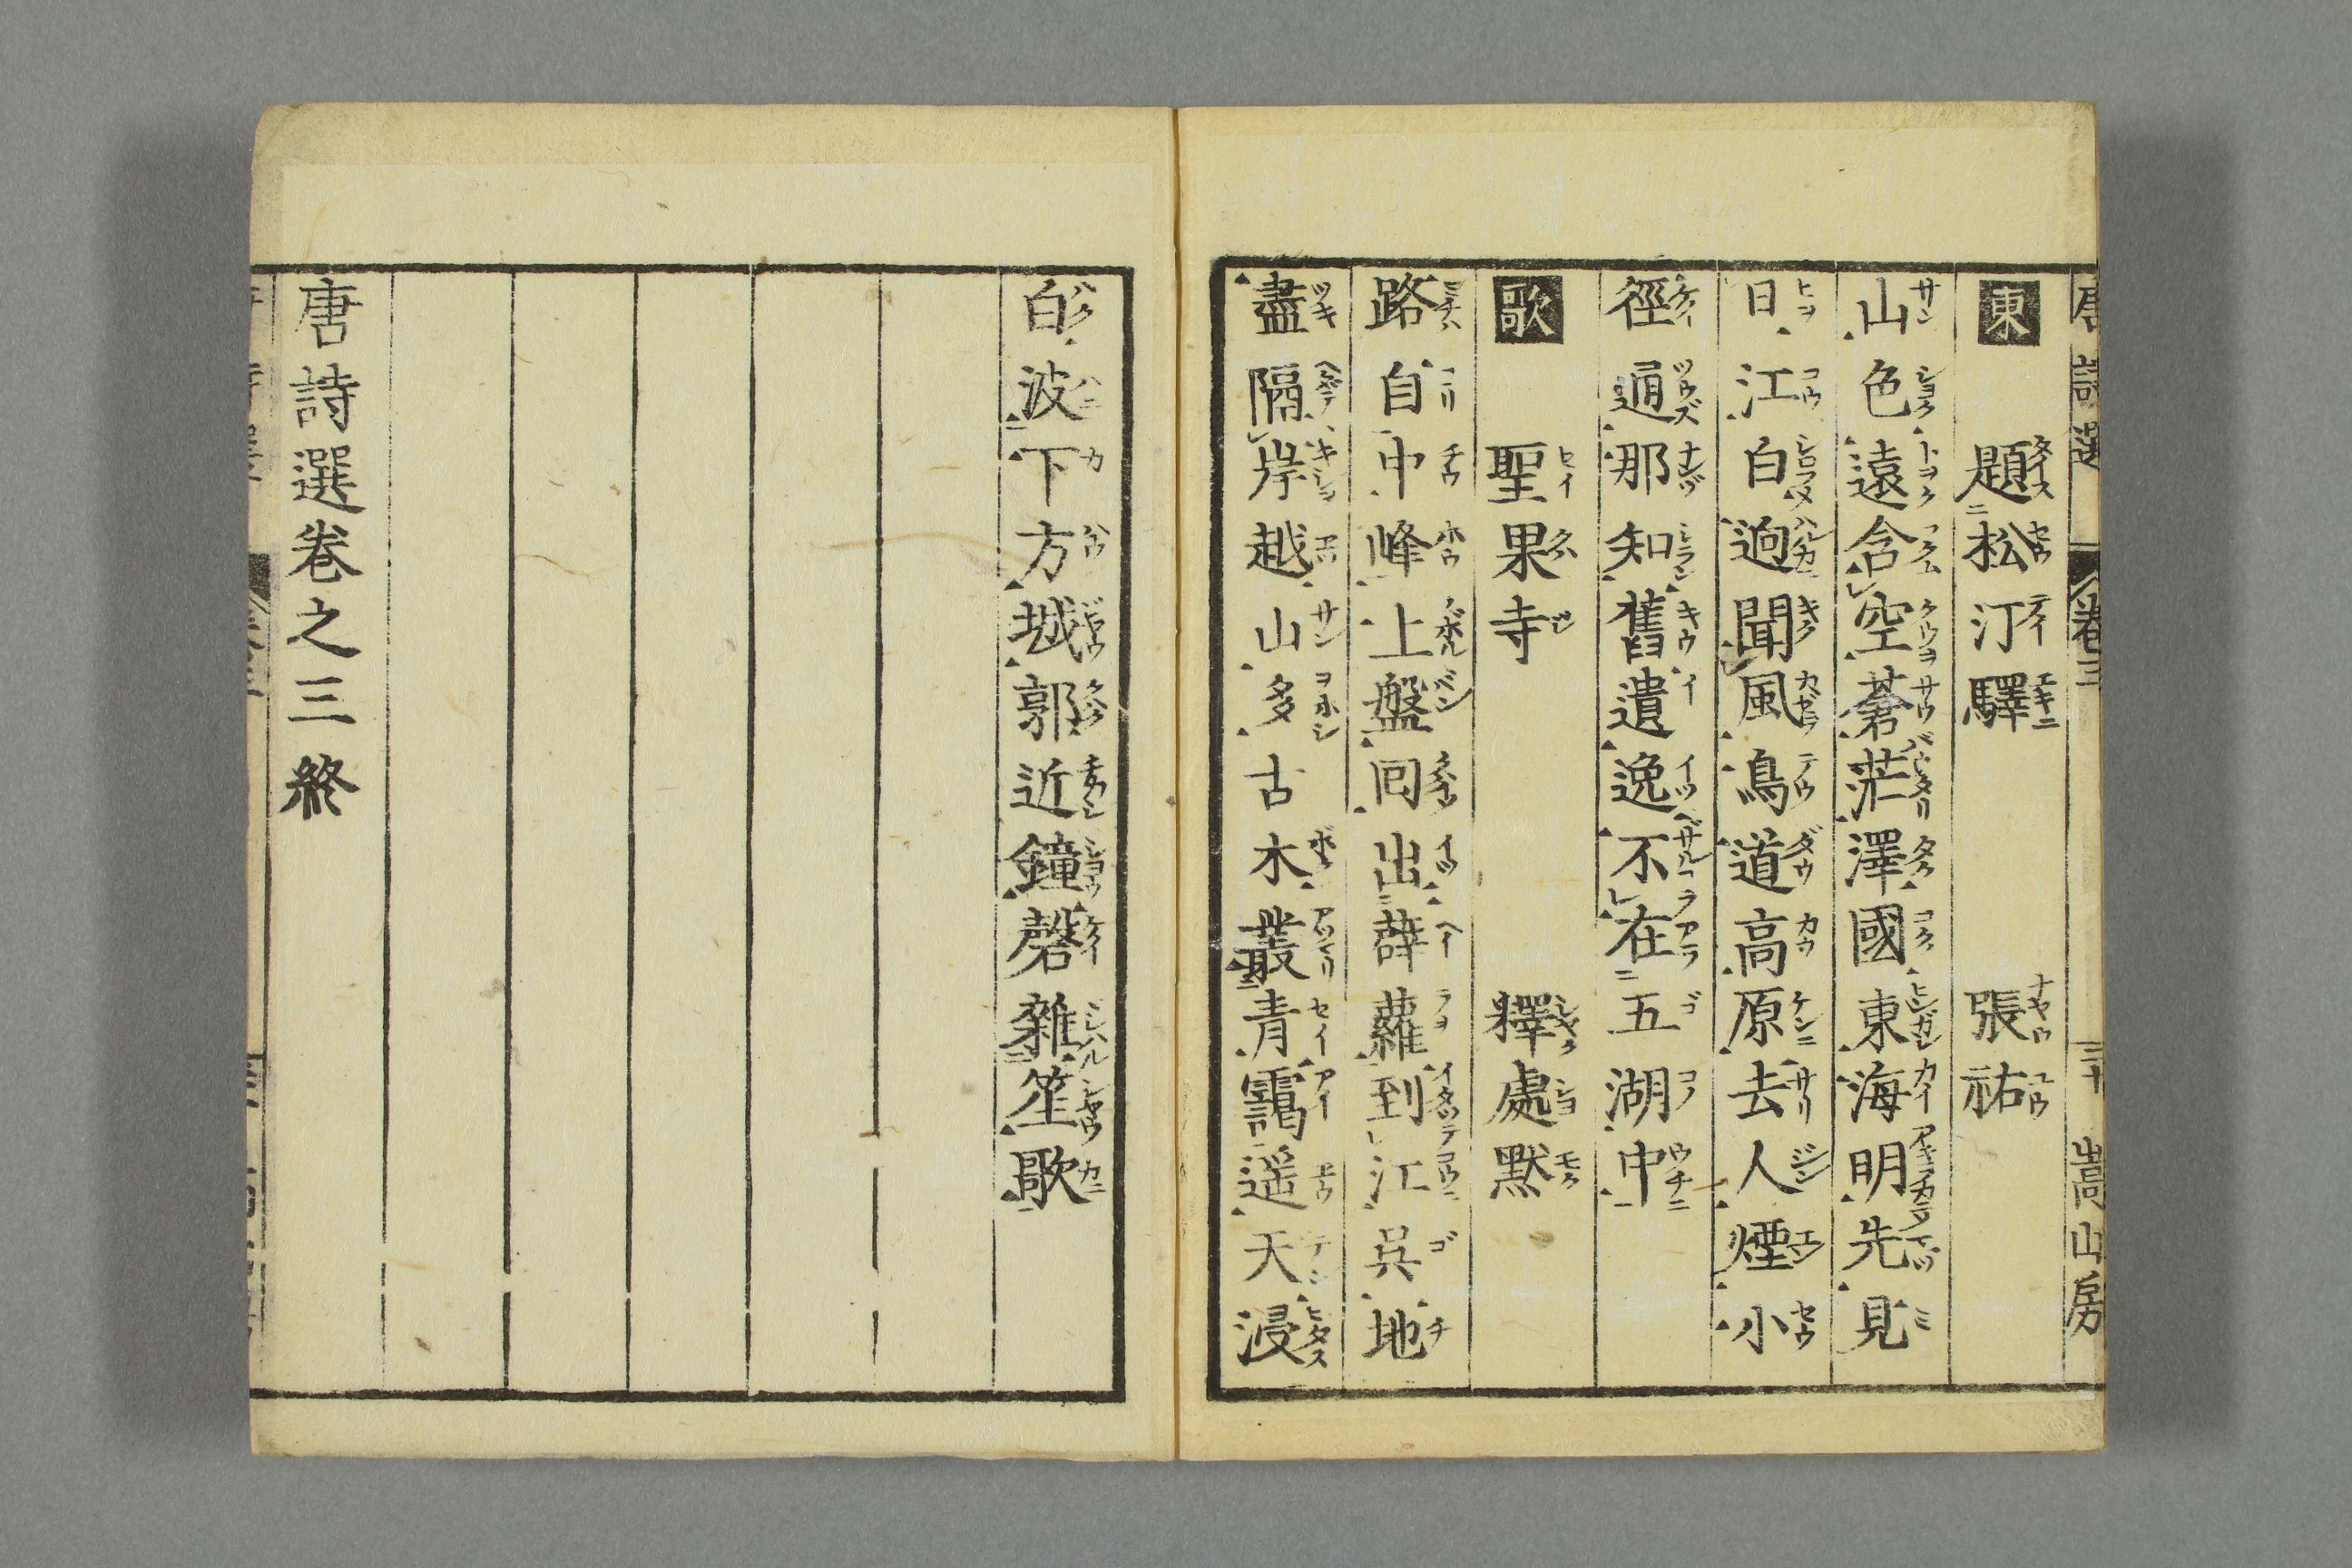 唐詩選 卷三 三十 嵩山房
東 題松汀驛 張祐
山色遠含空蒼茫澤國東海明先見
日江白逈聞風鳥道高原去人煙小
徑通那知舊遺逸不在五湖中
歌 聖果寺 釋處默
路自中峰上盤囘出薜蘿到江吳地
盡隔岸越山多古木叢青靄遥天浸
白波下方城郭近鐘磬雜笙歌
唐詩選卷之三終